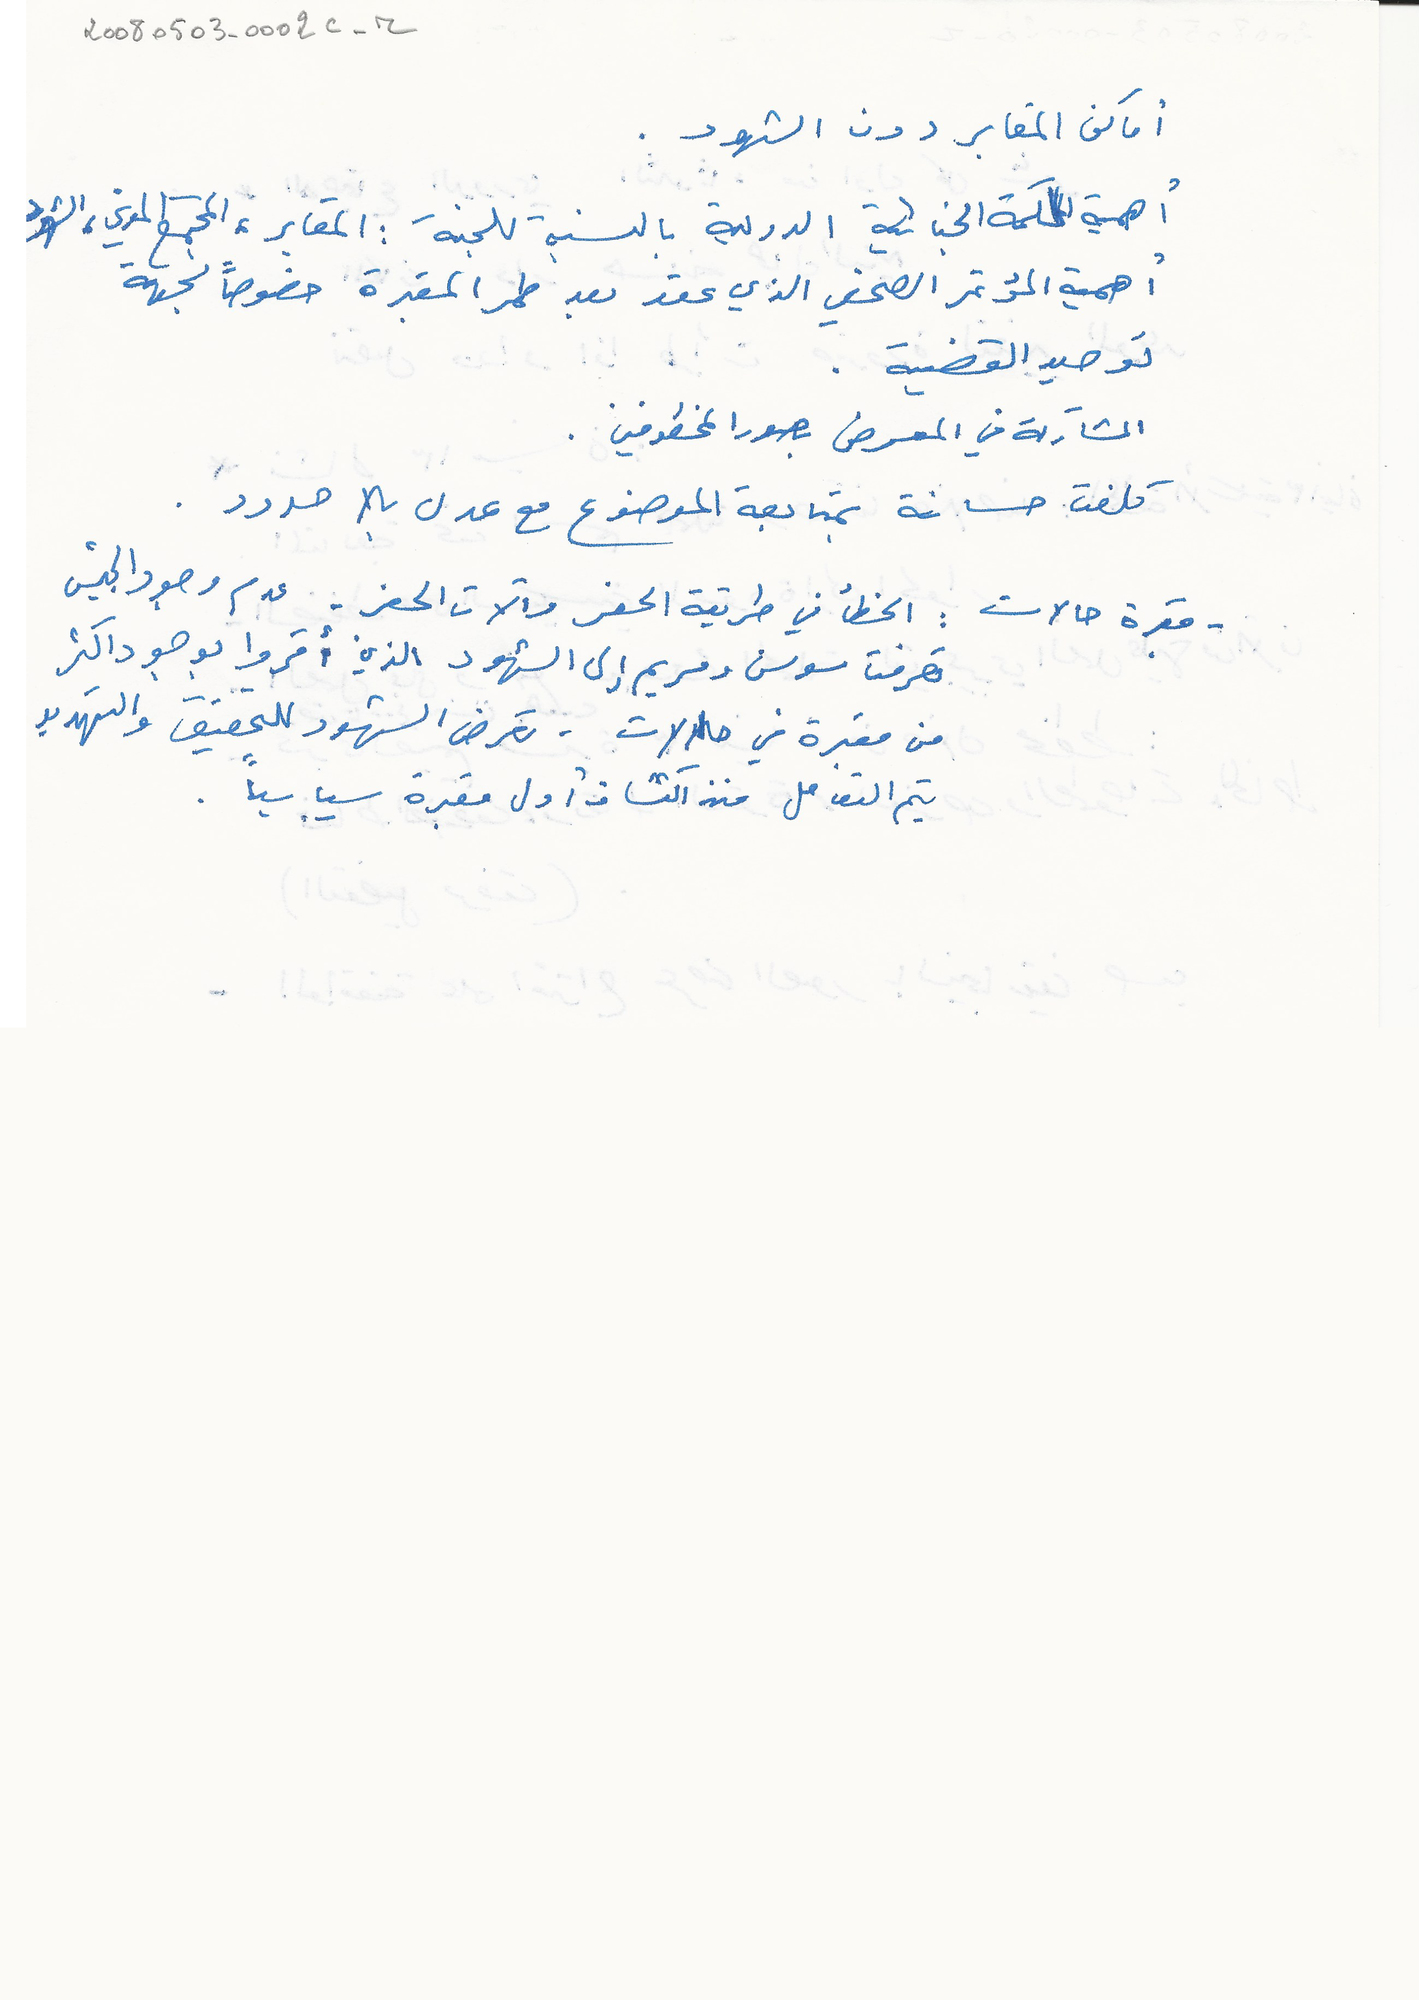 20080503-0002c-r
أماكن المقابر دون الشهود .
أهمية المحكمة الجنائية الدولية بالنسبة للجنة : المقابر ، المجتمع المدني ، الشهود
أهمية المؤتمر الصحفي الذي عقد بعد طمر المقبرة خصوصاً لجهة
توحيد القضية .
المشاركة في المعرض بصور المخطوفين .
كلفت حسانة بمتابعة الموضوع مع عدل بلا حدود .
- مقبرة حالات : الخطأ في طريقة الحفر وآلات الحفر - عدم وجود الجيش
تعرفت سوسن ومريم إلى الشهود الذين أقروا بوجود أكثر
من مقبرة في حالات - تعرض الشهود للتحقيق والتهديد
يتم التعامل منذ اكتشاف أول مقبرة سياسياً .